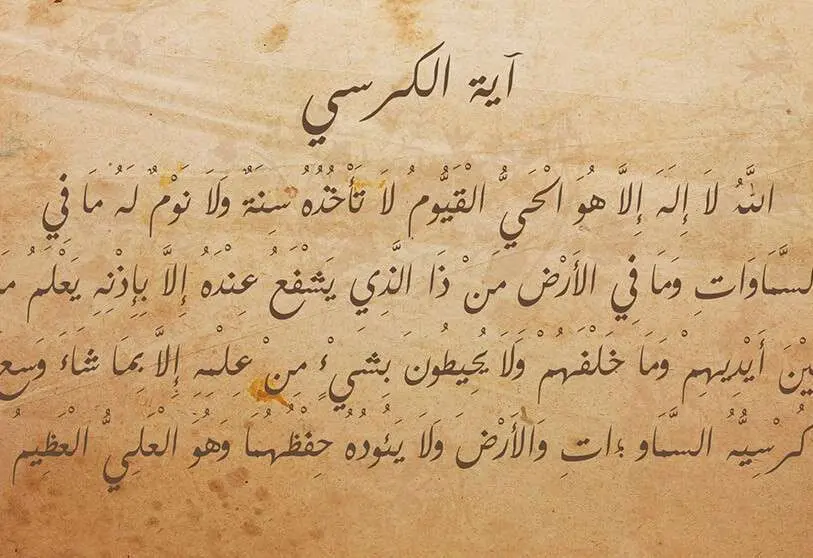 آية الكرسي
اللَّهُ لَا إِلَهَ إِلَّا هُوَ الْحَيُّ الْقَيُّومُ لَا تَأْخُذُهُ سِنَةٌ وَلَا نَوْمٌ لَهُ مَا فِي
السَّمَاوَاتِ وَمَا فِي الأَرْضِ مَنْ ذَا الَّذِي يَشْفَعُ عِنْدَهُ إِلَّا بِإِذْنِهِ يَعْلَمُ
أَيْدِيهِمْ وَمَا خَلْفَهُمْ وَلَا يُحِيطُونَ بِشَيْءٍ مِنْ عِلْمِهِ إِلَّا بِمَا شَاءَ وَسِعَ
كُرْسِيُّهُ السَّمَاو ؛اتِ وَالأَرْضَ وَلَا يَئُودُهُ حِفْظُهُمَا وَهُوَ الْعَلِيُّ الْعَظِيمُ